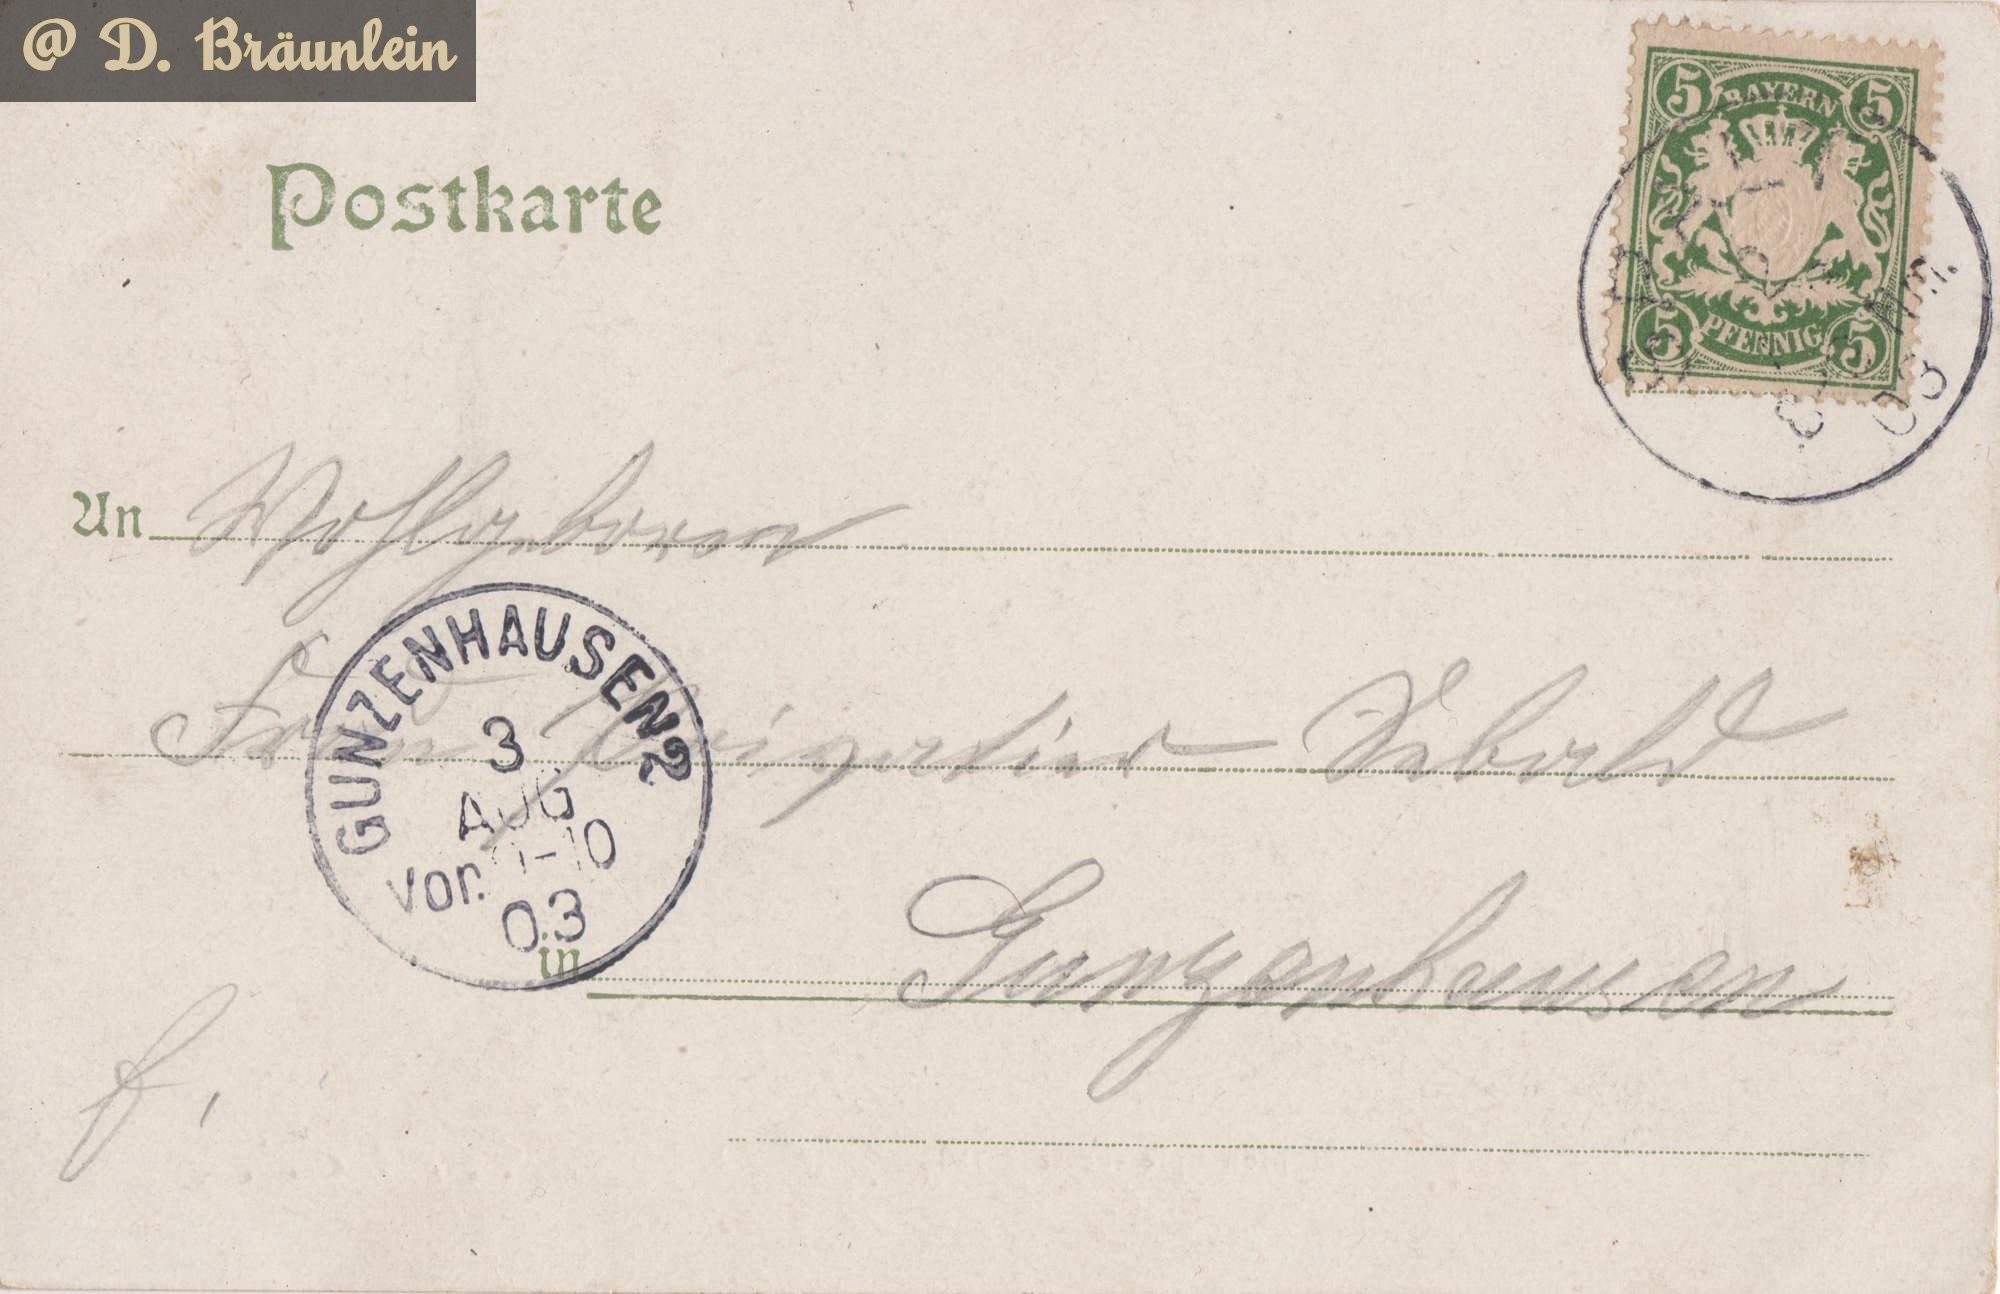 @ D. Bräunlein
5 BAYERN 5
5 PFENNIG 5
Postkarte
An Wohlgeboren
Frau Sebald
GUNZENHAUSEN 2
3
AUG
Vor. 9-10
03
in Gunzenhausen
f.